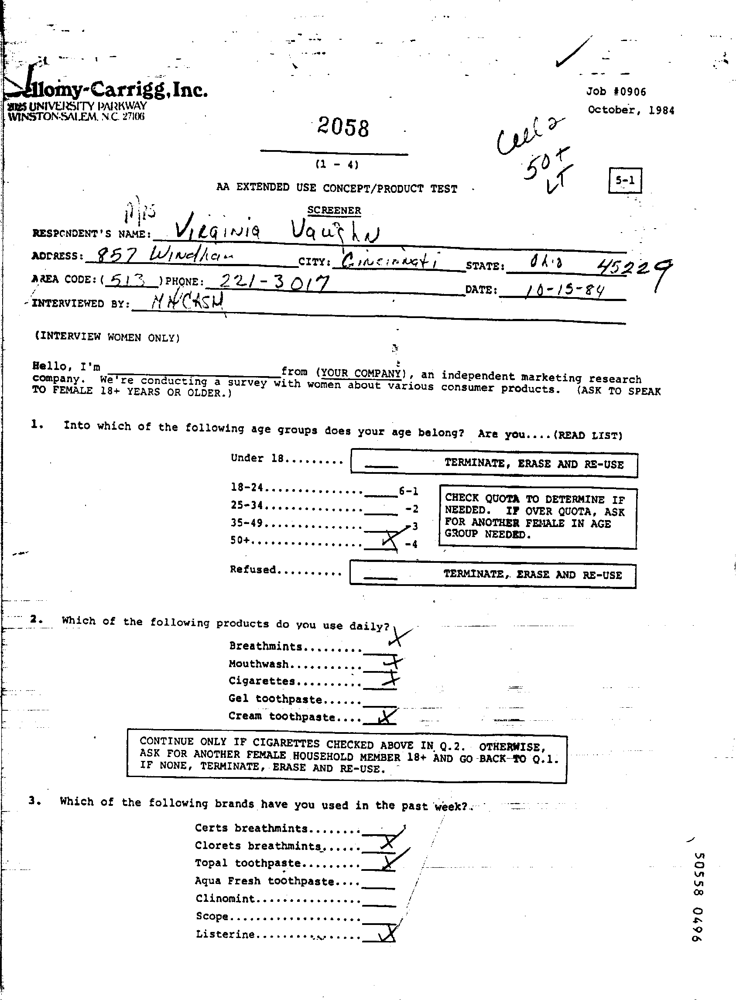 Ellomy-Carrigg, Inc.
UNIVERSITY PARKWAY
WINSTON-SALEM, N.C. 27106
Job #0906
October, 1984
2058
(1 - 4)
Cell 2
50+
LT
5-1
AA EXTENDED USE CONCEPT/PRODUCT TEST
SCREENER
RESPONDENT'S NAME: Mrs Virginia Vaughn
ADDRESS: 857 Windham CITY: Cincinnati STATE: Ohio 45229
AREA CODE: (513) PHONE: 221-3017 DATE: 10-15-84
INTERVIEWED BY:
(INTERVIEW WOMEN ONLY)
Hello, I'm ____ from (YOUR COMPANY), an independent marketing research
company. We're conducting a survey with women about various consumer products. (ASK TO SPEAK
TO FEMALE 18+ YEARS OR OLDER.)
1. Into which of the following age groups does your age belong? Are you....(READ LIST)
Under 18......... ____ TERMINATE, ERASE AND RE-USE
18-24............... ____6-1
25-34............... ____ -2
35-49............... ____ -3
50+................. X -4
CHECK QUOTA TO DETERMINE IF
NEEDED. IF OVER QUOTA, ASK
FOR ANOTHER FEMALE IN AGE
GROUP NEEDED.
Refused.......... ____ TERMINATE, ERASE AND RE-USE
2. Which of the following products do you use daily?
Breathmints......... X
Mouthwash........... X
Cigarettes.......... X
Gel toothpaste...... ____
Cream toothpaste.... X
CONTINUE ONLY IF CIGARETTES CHECKED ABOVE IN Q.2. OTHERWISE,
ASK FOR ANOTHER FEMALE HOUSEHOLD MEMBER 18+ AND GO BACK TO Q.1.
IF NONE, TERMINATE, ERASE AND RE-USE.
3. Which of the following brands have you used in the past week?
Certs breathmints........ ____
Clorets breathmints...... X
Topal toothpaste......... X
Aqua Fresh toothpaste.... ____
Clinomint................ ____
Scope.................... ____
Listerine................ X
50558 0496